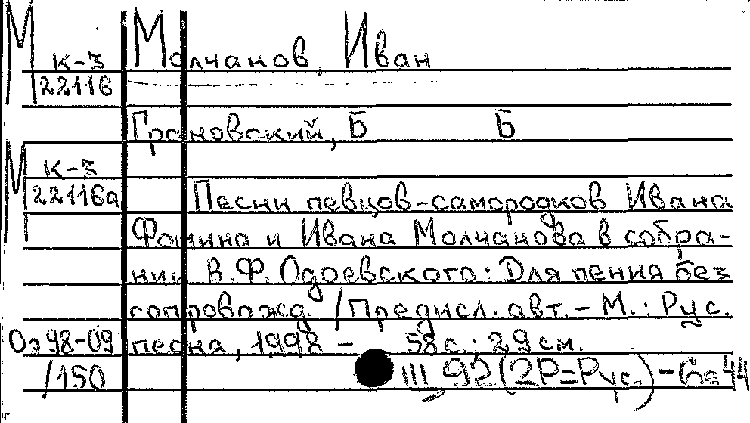 М к-3 Молчанов, Иван
22116
Грановский, Б Б
М к-3
22116а Песни певцов-самородков Ивана
Фомина и Ивана Молчанова в собра-
нии В.Ф. Одоевского: Для пения без
сопровожд. / Предисл. авт. - М.: Рус.
Оз 98-09 песня, 1998 - 58 с.; 29 см.
/150 III 92(2Р=Рус.)-6я44